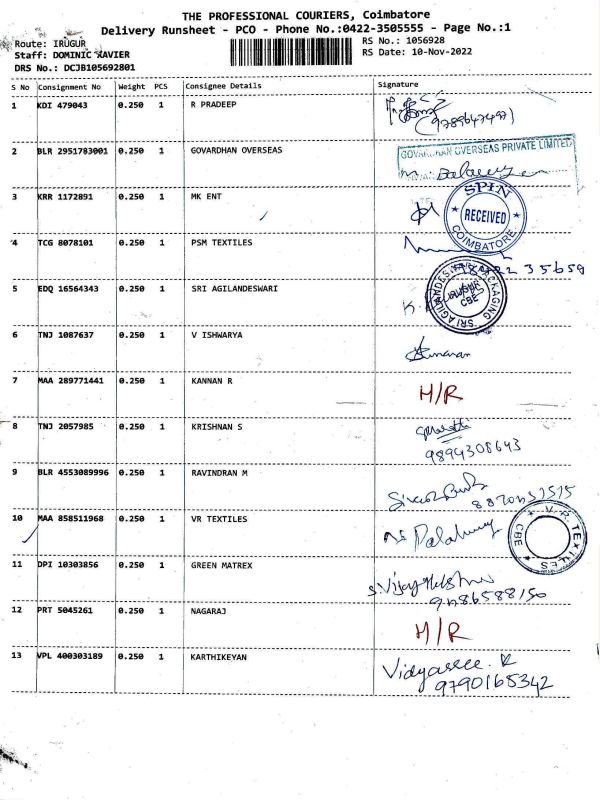 THE PROFESSIONAL COURIERS, Coimbatore
Delivery Runsheet - PCO - Phone No.:0422-3505555 - Page No.:1
Route: IRUGUR
RS No.: 1056928
Staff: DOMINIC XAVIER
RS Date: 10-Nov-2022
DRS No.: DCJB105692801
S No Consignment No Weight PCS Consignee Details Signature
1 KDI 479043 0.250 1 R PRADEEP
2 BLR 2951783001 0.250 1 GOVARDHAN OVERSEAS
GOVARDHAN OVERSEAS PRIVATE LIMITED
3 KRR 1172891 0.250 1 MK ENT
SPIN RECEIVED COIMBATORE
4 TCG 8078101 0.250 1 PSM TEXTILES
5 EDQ 16564343 0.250 1 SRI AGILANDESWARI
SRI AGILANDES PACKAGING CBE
6 TNJ 1087637 0.250 1 V ISHWARYA
7 MAA 289771441 0.250 1 KANNAN R H/R
8 TNJ 2057985 0.250 1 KRISHNAN S
9894308643
9 BLR 4553089996 0.250 1 RAVINDRAN M
10 MAA 858511968 0.250 1 VR TEXTILES
V.R. TEXTILES CBE
11 DPI 10303856 0.250 1 GREEN MATREX
12 PRT 5045261 0.250 1 NAGARAJ H/R
13 VPL 400303189 0.250 1 KARTHIKEYAN
9790165342